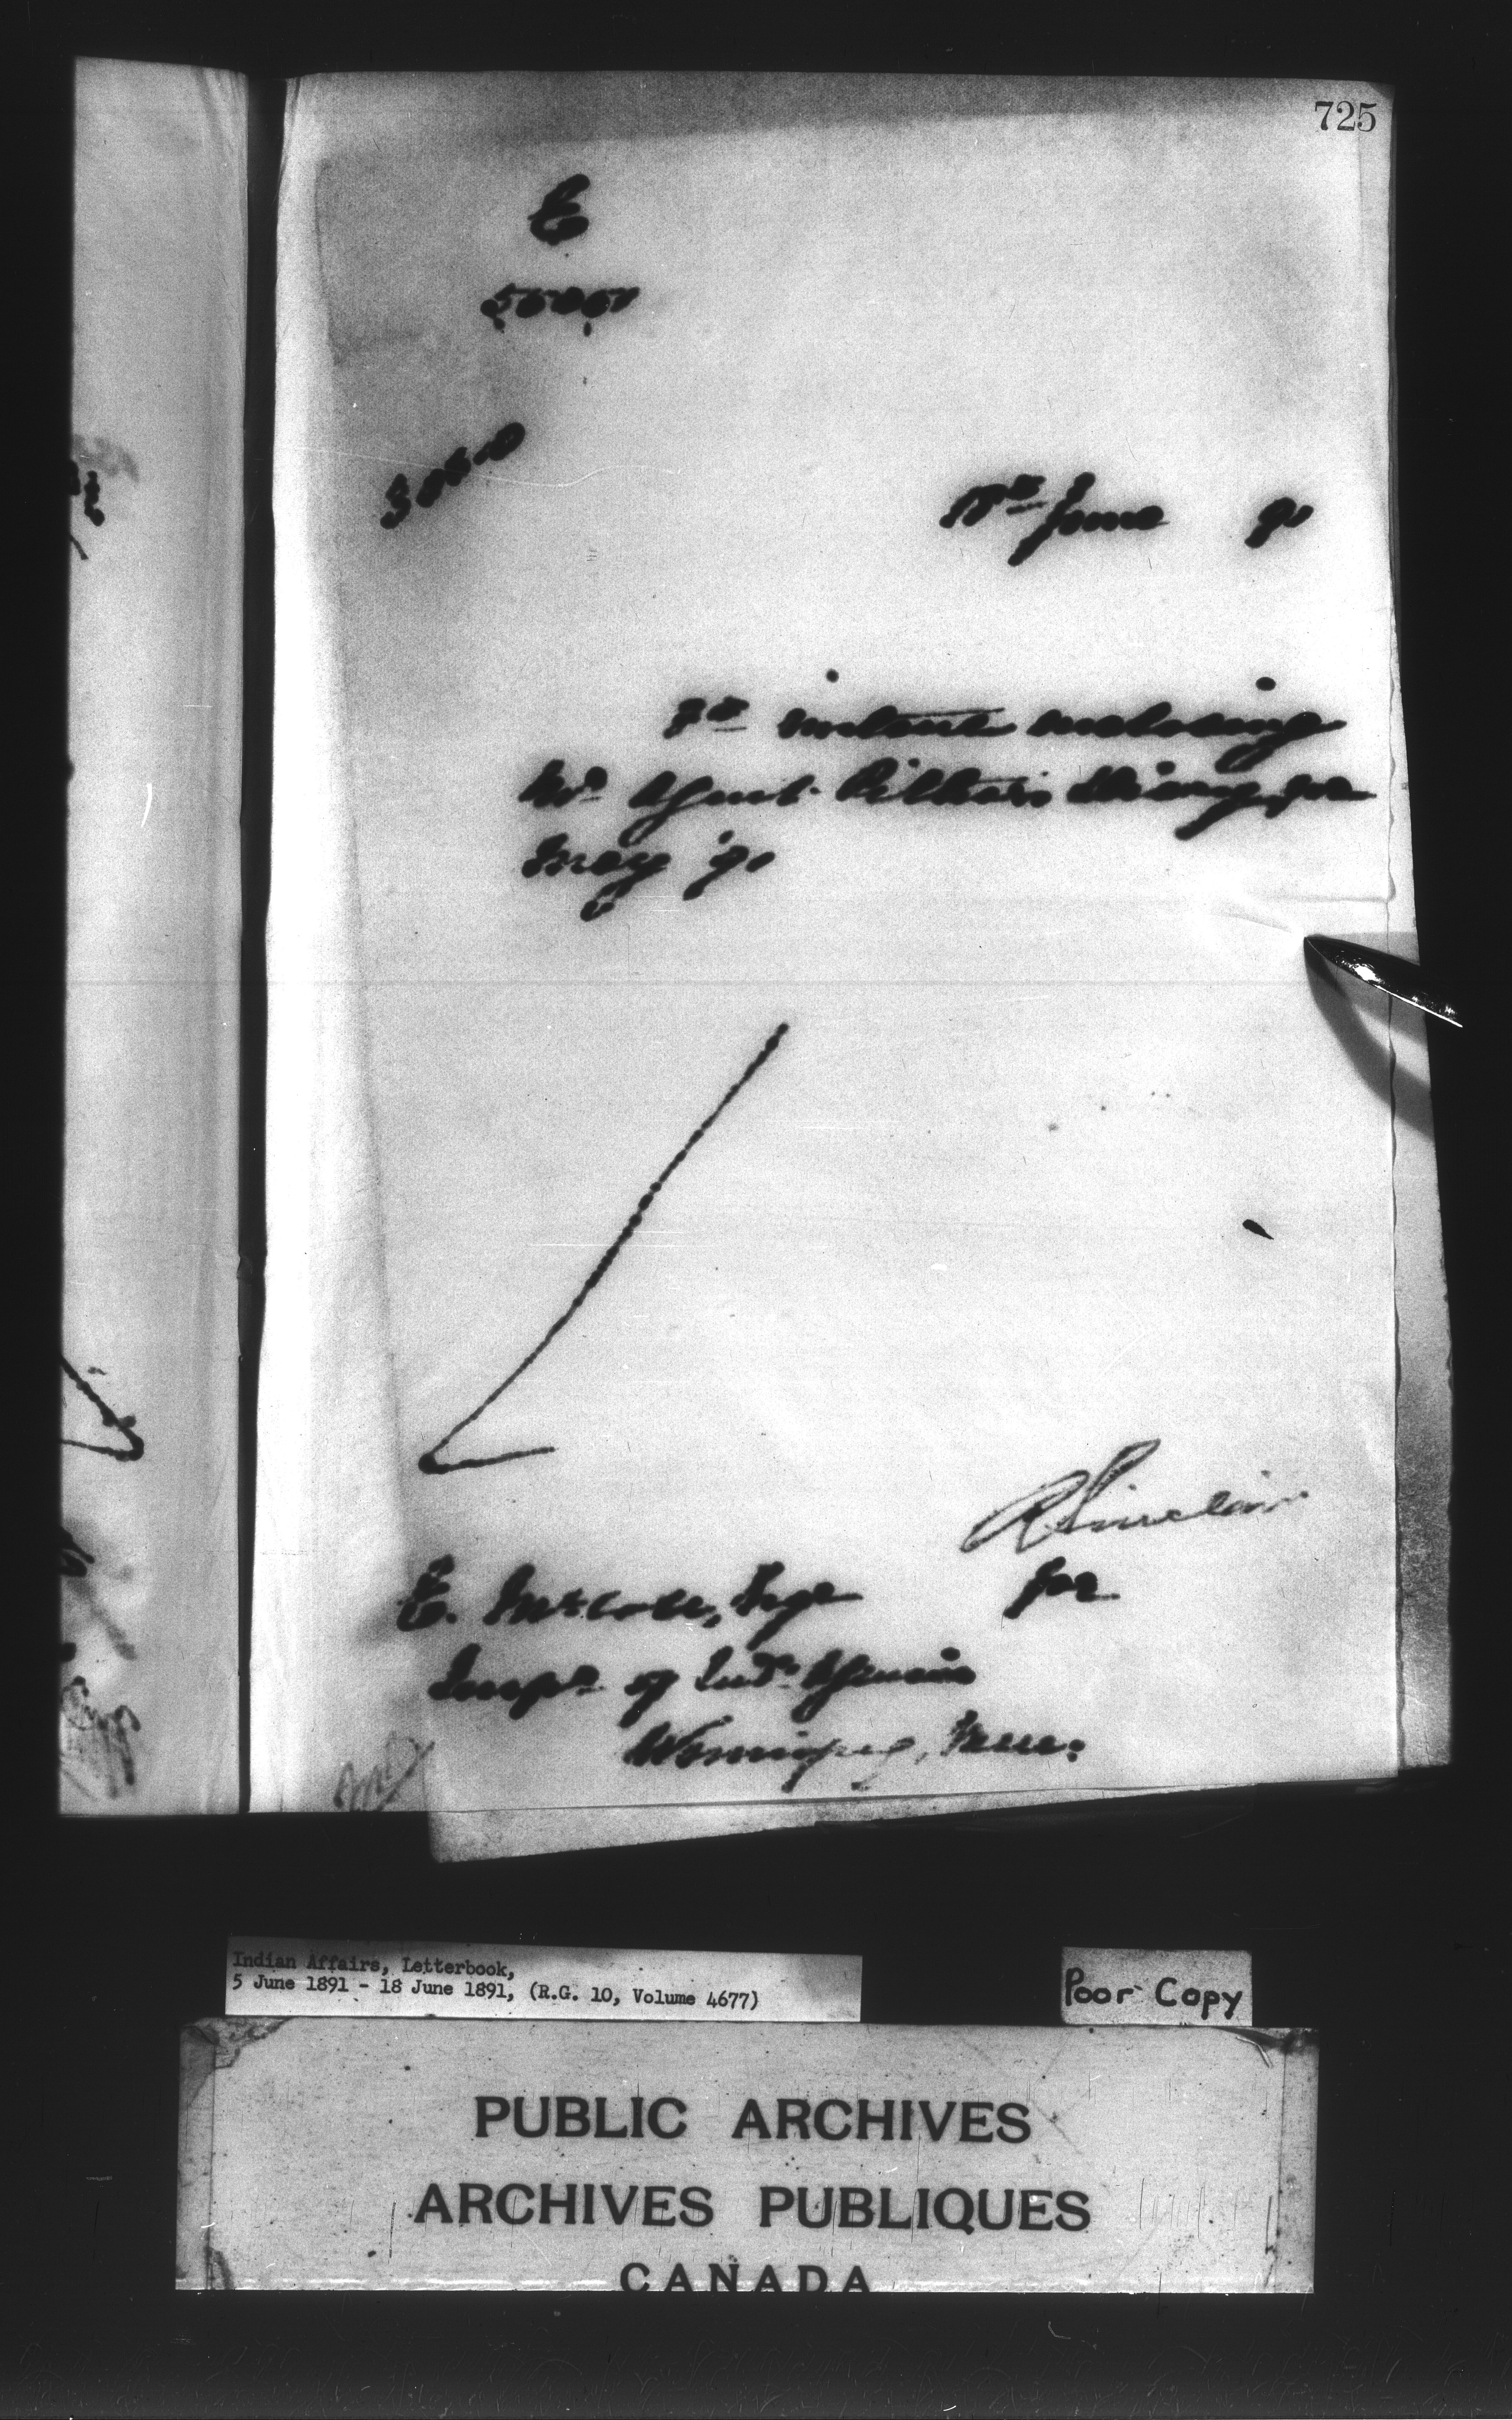 725
E
18th June 91
7th instant enclosing
Mr Agent Pither's Diary for
May 91
R Sinclair
E. McColl, Esqr for
Inspr of Indn Agencies
Winnipeg, Man:
Indian Affairs, Letterbook,
5 June 1891 - 18 June 1891, (R.G. 10, Volume 4677)
Poor Copy
PUBLIC ARCHIVES
ARCHIVES PUBLIQUES
CANADA